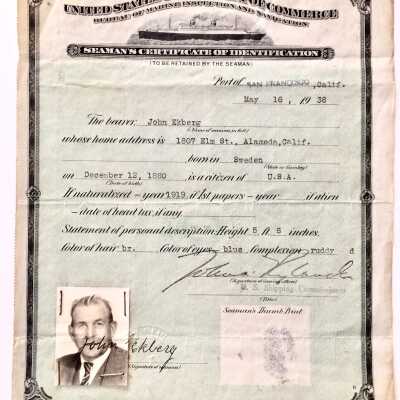 UNITED STATES OF COMMERCE
BUREAU OF MARINE INSPECTION AND NAVIGATION
SEAMAN'S CERTIFICATE OF IDENTIFICATION
(TO BE RETAINED BY THE SEAMAN)
Port of SAN FRANCISCO, Calif.
May 16, 1938
The bearer, John Ekberg
(Name of seaman, in full)
whose home address is 1807 Elm St., Alameda, Calif.
born in Sweden
(State or Country)
on December 12, 1880 is a citizen of U.S.A.
(Date of birth)
If naturalized - year 1919 if 1st papers - year if alien
- date of head tax, if any.
Statement of personal description: Height 5 ft 5 ins.
Color of hair br. Color of eyes blue Complexion ruddy
(Signature of issuing officer)
U. S. Shipping Commissioner
(Title)
Seaman's Thumb Print
John Ekberg
(Signature of seaman)